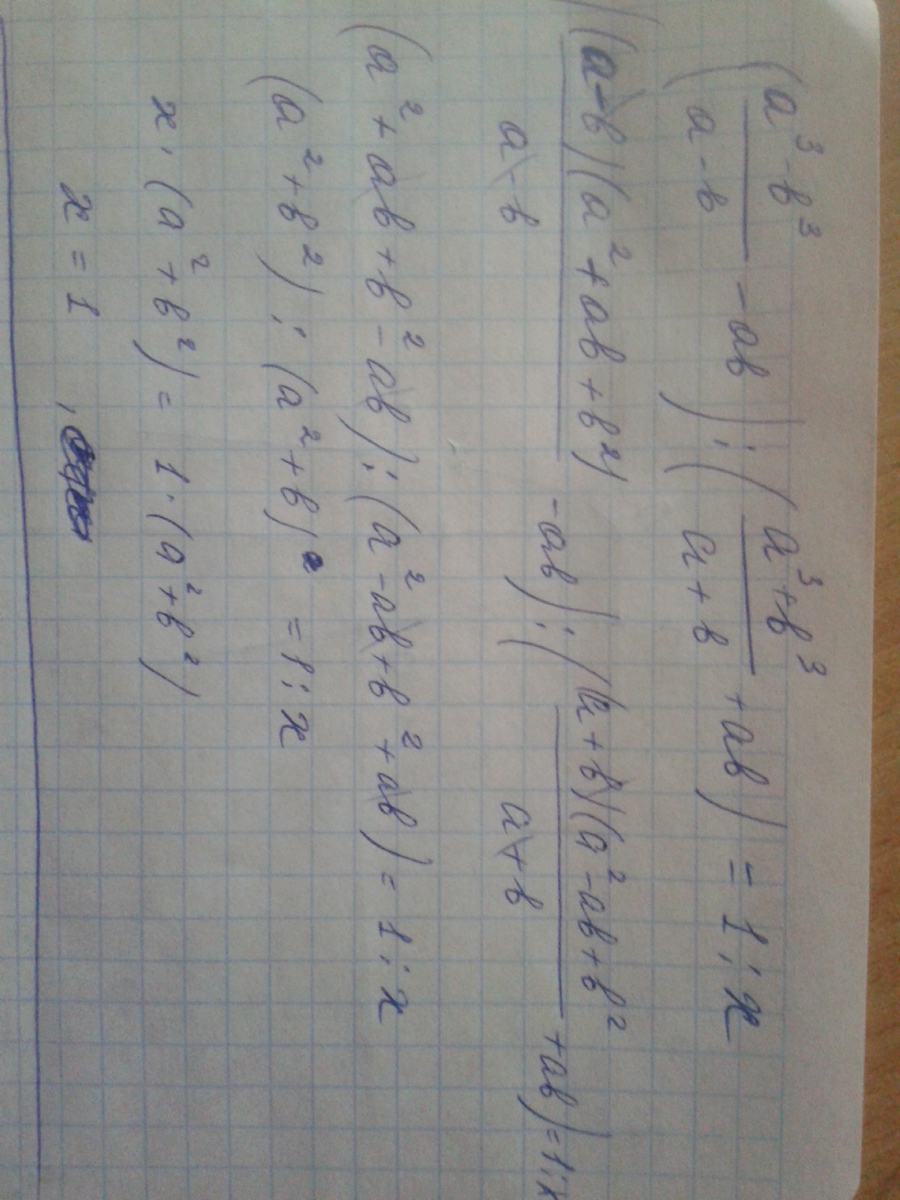 (a³-b³/a-b - ab) : (a³+b³/a+b + ab) = 1 : x
((a-b)(a²+ab+b²)/a-b - ab) : ((a+b)(a²-ab+b²/a+b + ab) = 1 : x
(a²+ab+b²-ab) : (a²-ab+b²+ab) = 1 : x
(a²+b²) : (a²+b) = 1 : x
x · (a²+b²) = 1 · (a²+b²)
x = 1,